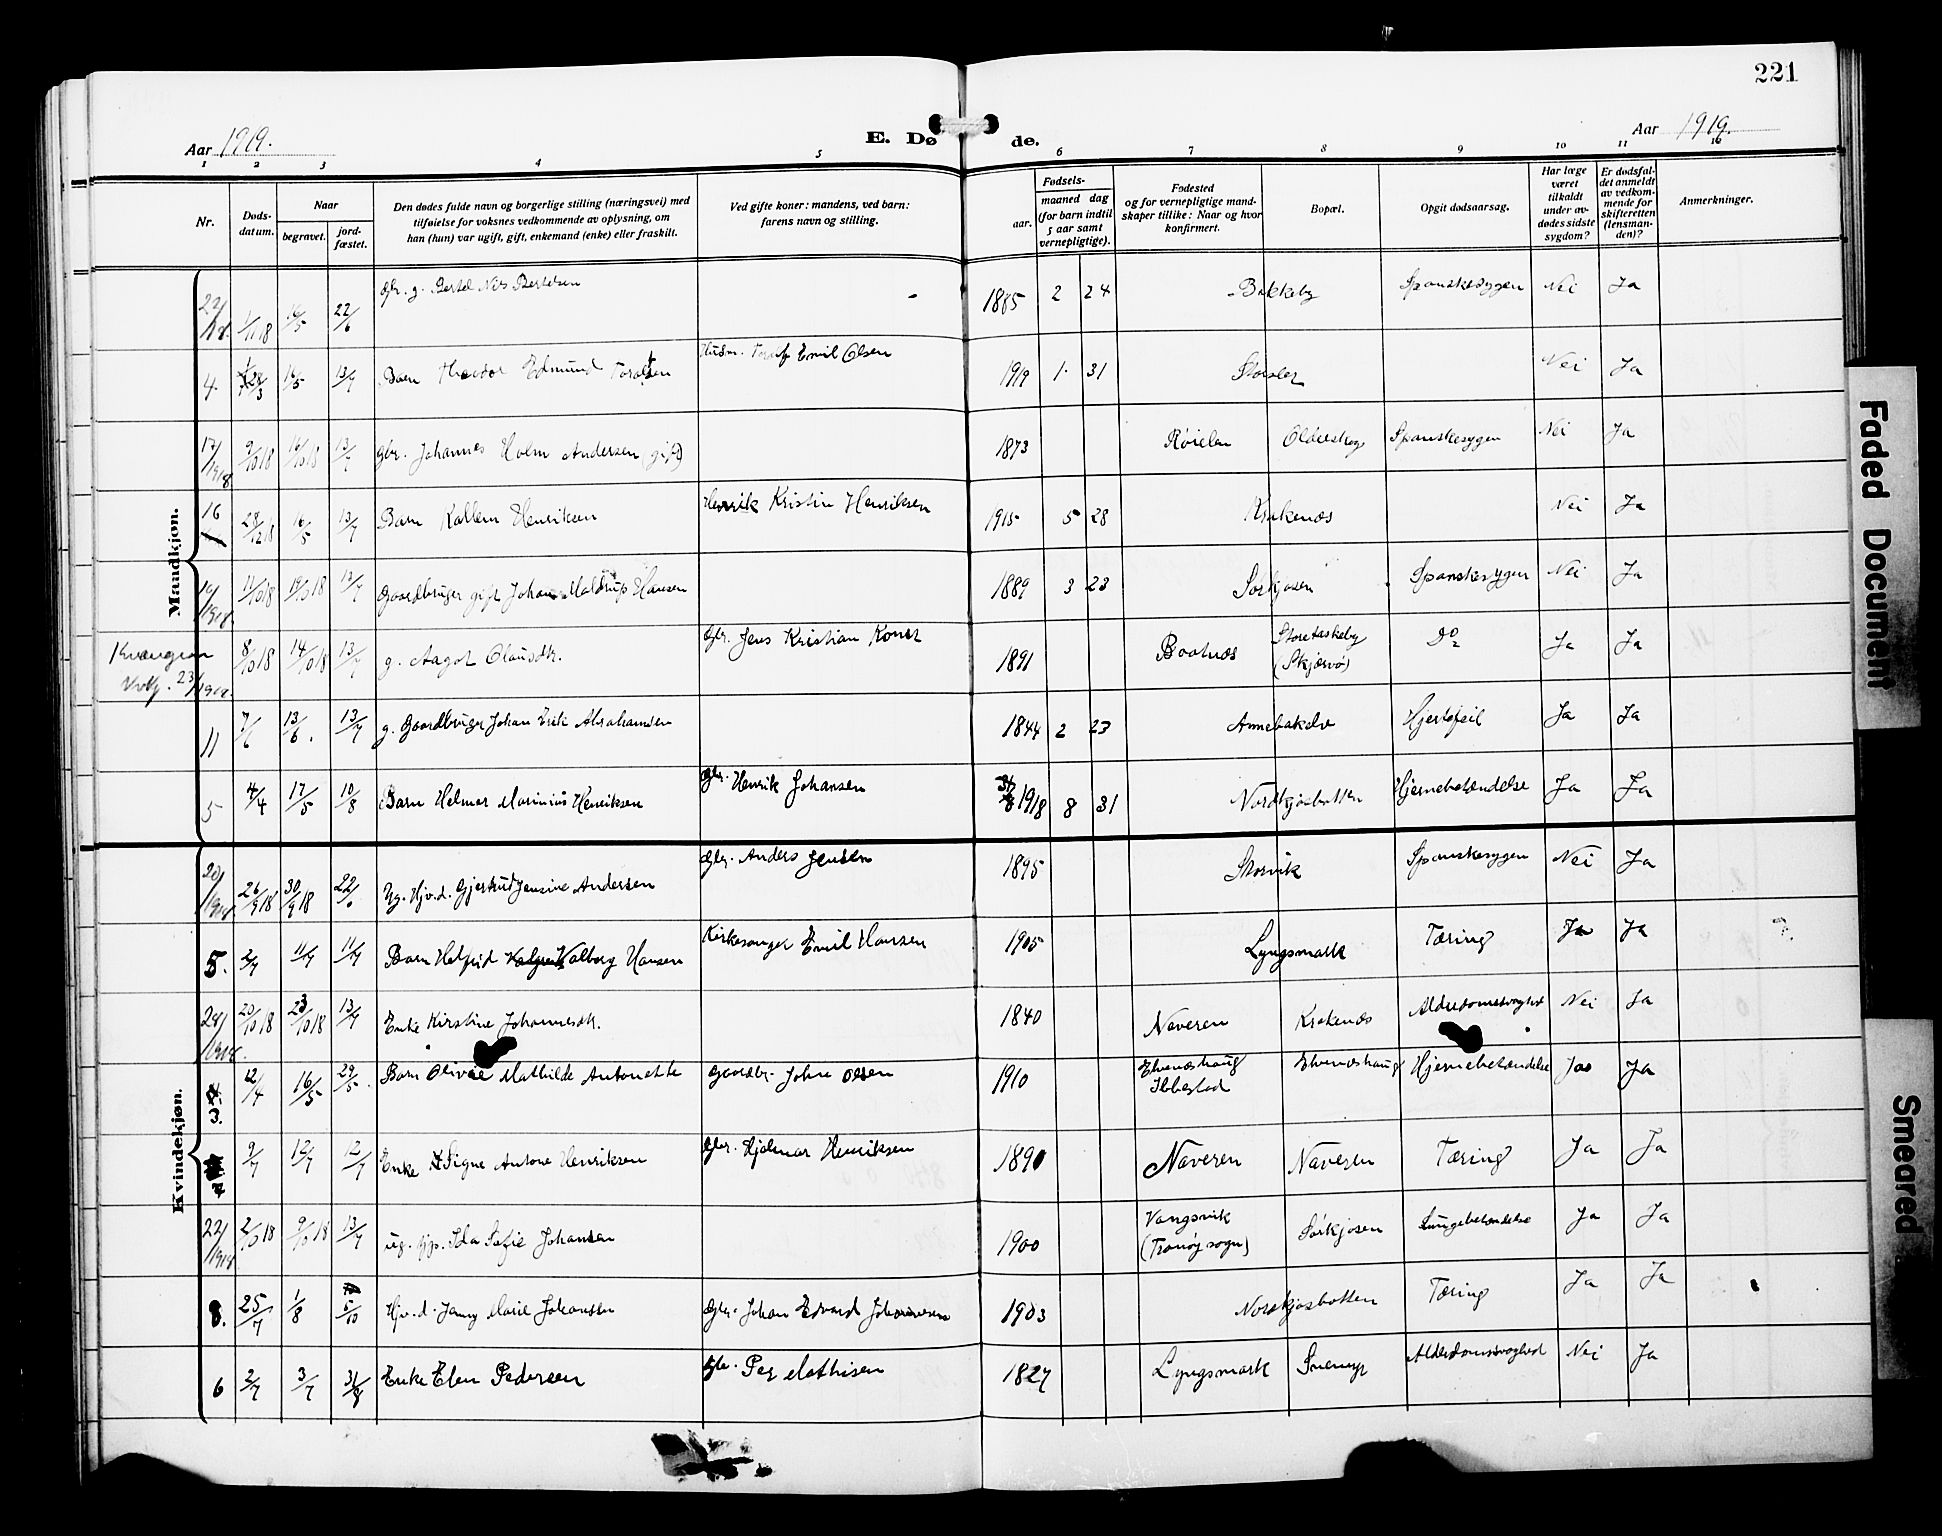 221
Aar 1919.
E. Dø de.
Aar 1919.
1 2 3 4 5 6 7 8 9 10 11 10
Nr.
Døds-
datum.
Naar
begravet.
jord-
fæstet.
Den dødes fulde navn og borgerlige stilling (næringsvei) med
tilføielse for voksnes vedkommende av oplysning, om
han (hun) var ugift, gift, enkemand (enke) eller fraskilt.
Ved gifte koner: mandens, ved barn:
farens navn og stilling.
Fødsels-
aar.
maaned dag
(for barn indtil
5 aar samt
vernepligtige).
Fødested
og for vernepligtige mand-
skaper tillike: Naar og hvor
konfirmert.
Bopæl.
Opgit dødsaarsag.
Har læge
været
tilkaldt
under av-
dødes sidste
sygdom?
Er dødsfal-
det anmeldt
av vedkom-
mende for
skifteretten
(lensman-
den)?
Anmerkninger.
Mandkjøn.
22/1918. 1/11 18 16/5 22/6 Gbr. g. Bertel Nils Bertelsen - 1885 2 24 Bakkeby Spanskesygen Nei Ja
4. 28/3 16/5 13/7 Barn Theodor Edmund Toralfsen Husm. Toralf Emil Olsen 1919 1. 31 Nei Ja
17/1918 9/10 18 16/10 18 13/7 Gbr. Johannes Holm Andersen (gift) 1873 Røielen Olderskog Spanskesygen Nei Ja
16 28/12 18 16/5 13/7 Barn Henriksen Henrik Kristin Henriksen 1915 5 28 Krakenæs Nei Ja
12/10 18 19/10 18 13/7 Gaardbruger gift Johan Maldrup Hansen 1889 3 23 Sørkjosen Spanskesygen Nei Ja
Kvængen
23/1918. 8/10 18 14/10 18 13/7 g. Aagot Olausdtr. Gbr. Jens Kristian 1891 Baatnæs Storetaskeby
(Skjærvø) Do Ja Ja
11 7/6 13/6. 13/7 g. Gaardbruger Johan Erik Abrahamsen 1844 2 23 Hjertefeil Ja Ja
5 4/4 17/5 10/8 Barn Helmer Marinius Henriksen Gbr. Henrik Johansen 1918 8 31 Nordkjosbotten Hjernebetændelse Ja Ja
Kvindekjøn.
20/1918. 26/9 18 30/9 18 22/ Ug. Hjv.d. Gjertrud Jensine Andersen Gbr. Anders Jensen 1895 Storvik Spanskesygen Nei Ja
5. 2/7 11/7 11/7 Barn Helfrid Valborg Hansen Kirkesanger Emil Hansen 1905 Lyngsmark Tæring Ja Ja
24/1918. 20/10 18 23/10 18 13/7 Enke Kirstine Johannesdtr. 1840 Naveren Krakenæs Alderdomssvaghed Nei Ja
3. 12/4 16/5 29/5. Barn Olivie Mathilde Antonette Gaardbr. Johan Olsen 1910 Elvenæshaug
Ibbestad Elvenæshaug Hjernebetændelse Jas Ja
9/7 12/7 12/7 Enke Signe Antone Henriksen Gbr. Hjalmar Henriksen 1890 Naveren Naveren Tæring Ja Ja
22/1918 2/10 18 9/10 18 13/7 ug. Ida Sofie Johansen 1900 Vangsvik
(Tranøy sogn) Sørkjosen Lungebetændelse Ja Ja
8. 25/7 1/8 5/10 Hjv.d. Jenny Marie Johansen Gbr. Johan Edvard Johannesen 1903 Nordkjosbotten Tæring Ja Ja
6 2/7 3/7 31/8 Enke Elen Pedersen Gbr. Per Mathisen 1827 Lyngsmark Alderdomssvaghed Nei Ja
Faded Document
Smeared